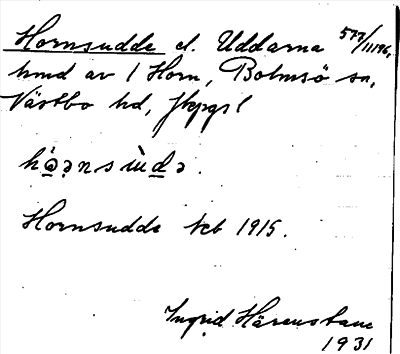 Hornsudde el. Uddarna 577/11196,
hmd av 1 Horn, Bolmsö sn,
Västbo hd, Jkpgs l
Hornsudde Teb 1915.
Ingrid Härenstam
1931